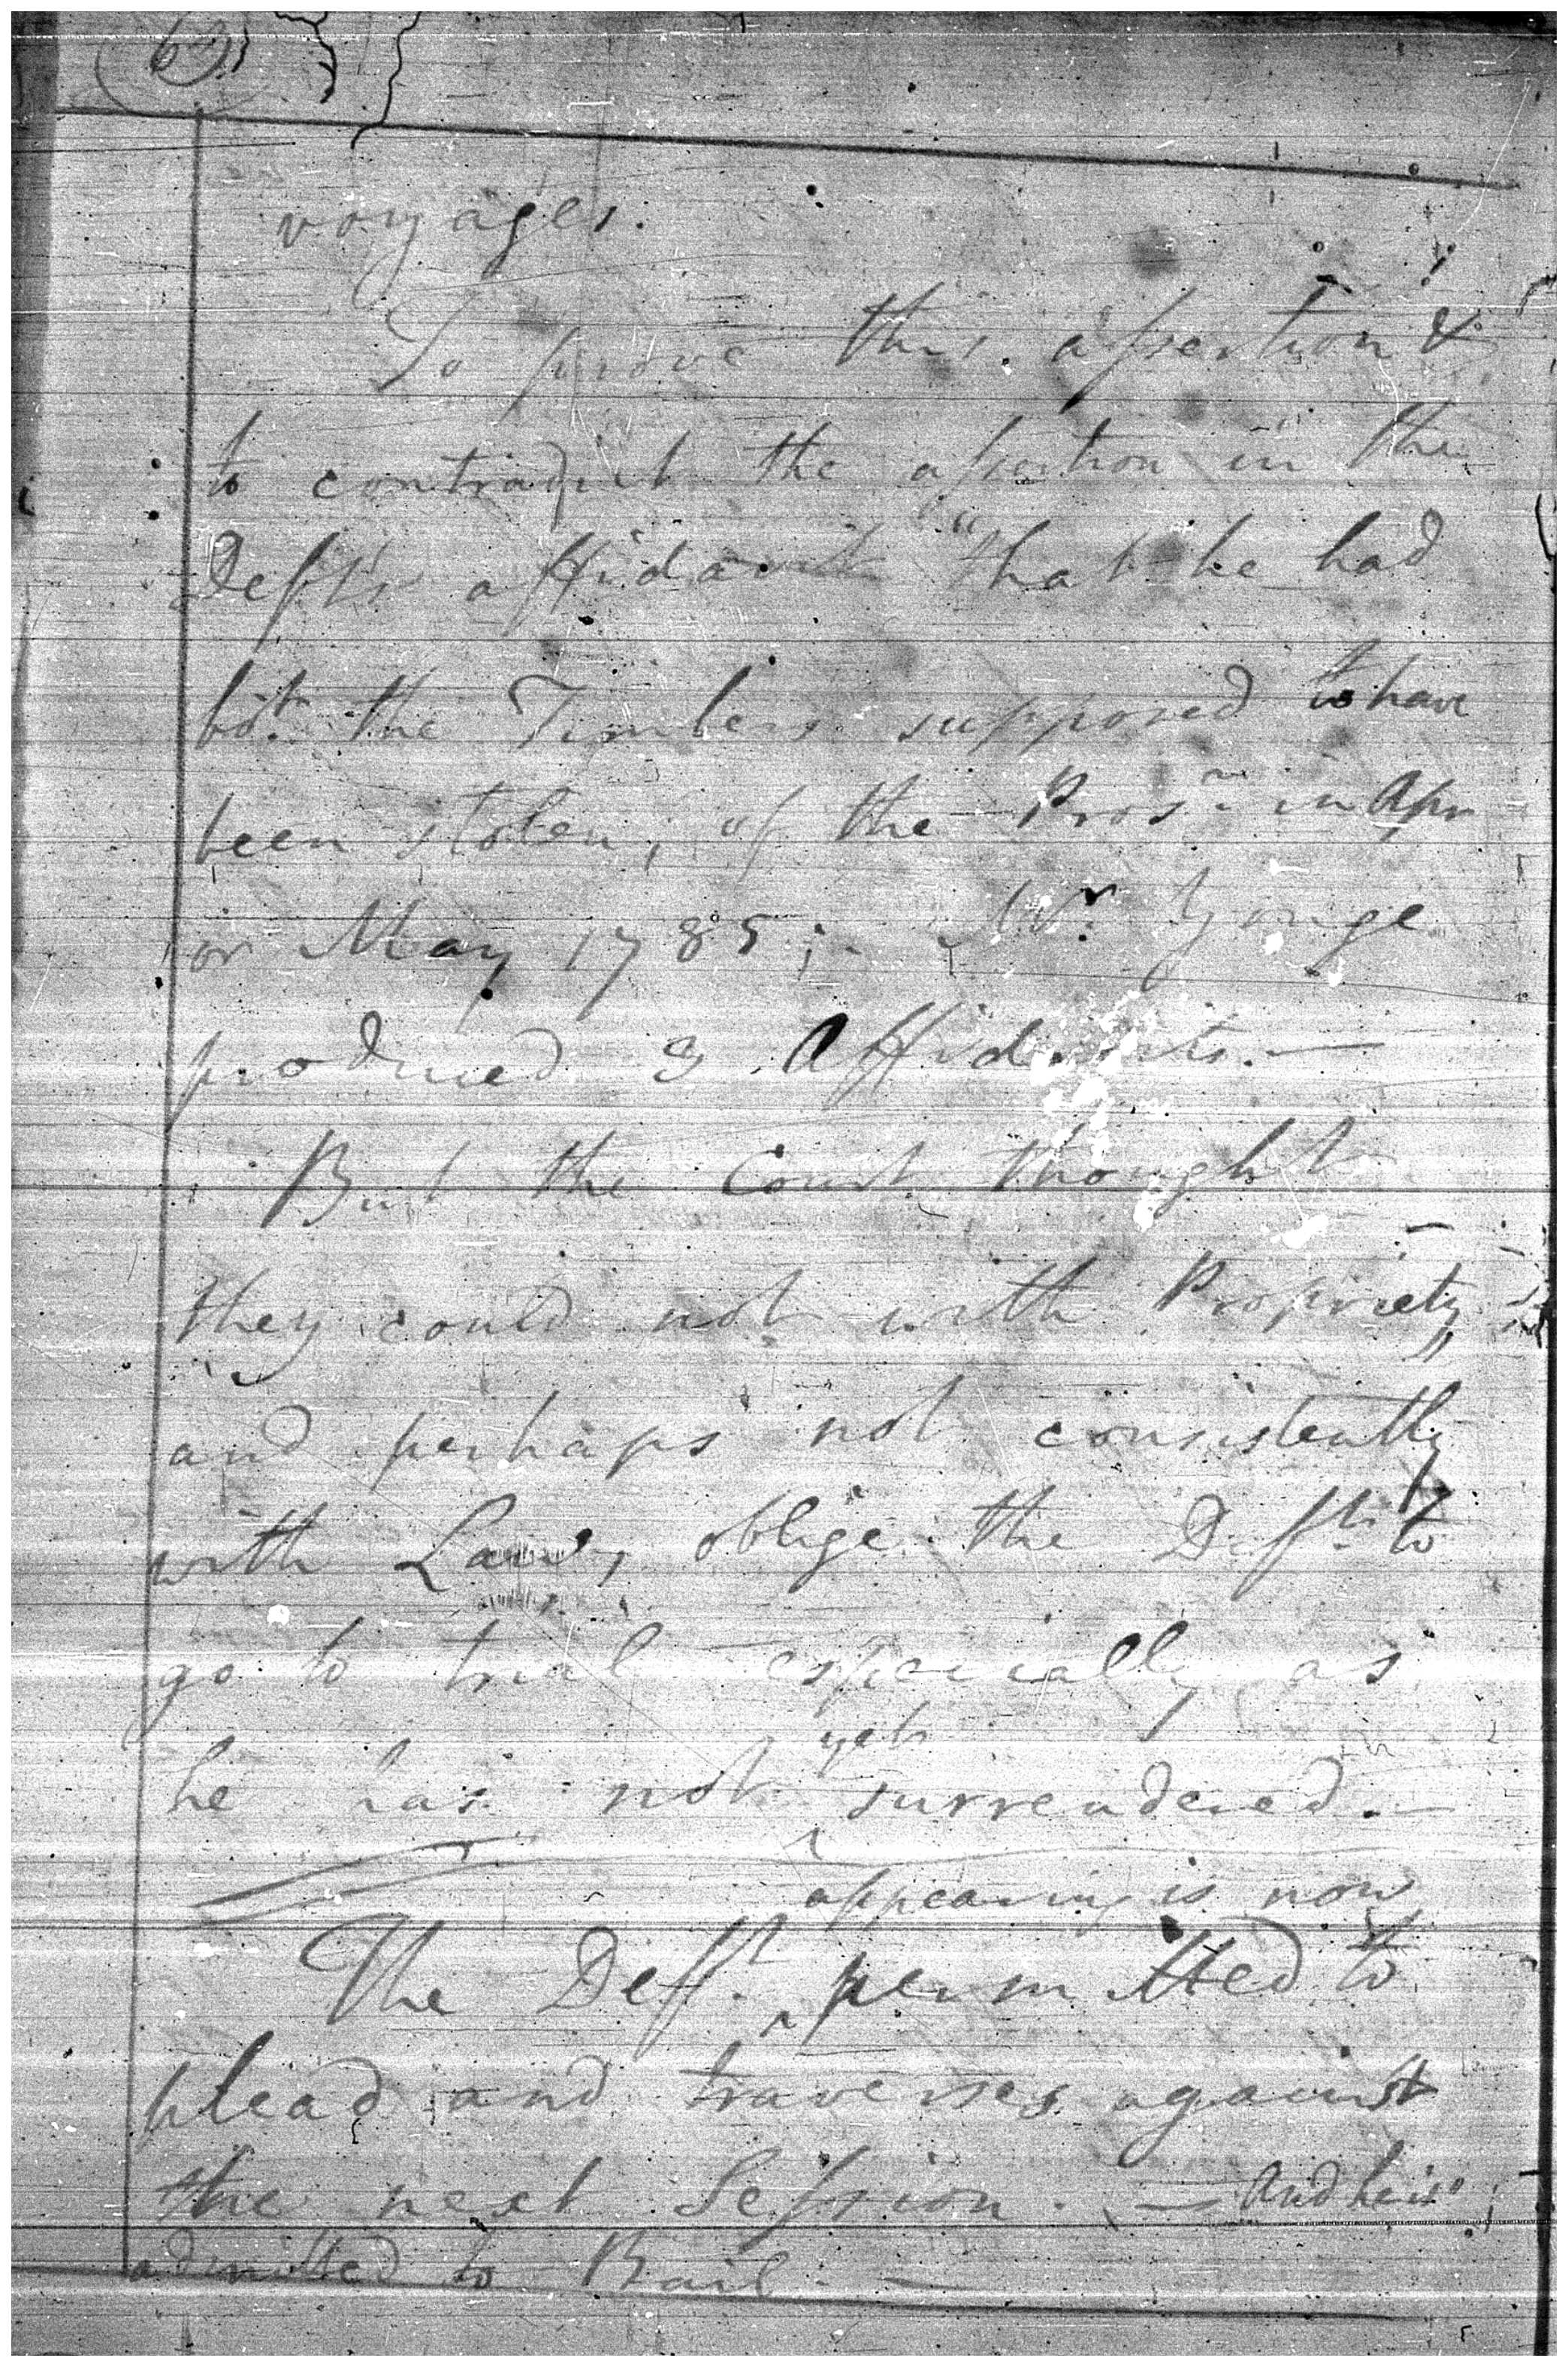 voyages.
To prove this assertion &
to contradict the assertion in the
Defts affidavit "that he had
bot. the Timbers supposed to have
been stolen, of the Prosr. in Apr
or May 1785;- Mr. Yonge
produced 3 Affidavits.—
But the Court thought
they could not with Propriety,
and perhaps not consistently
with Law, oblige the Deft. to
go to trial especially as
yet
he has not surrendered.—
appearing is now
The Deft. ^ permitted to
plead and traverses against
the next Session. — And he is
admitted to Bail. —